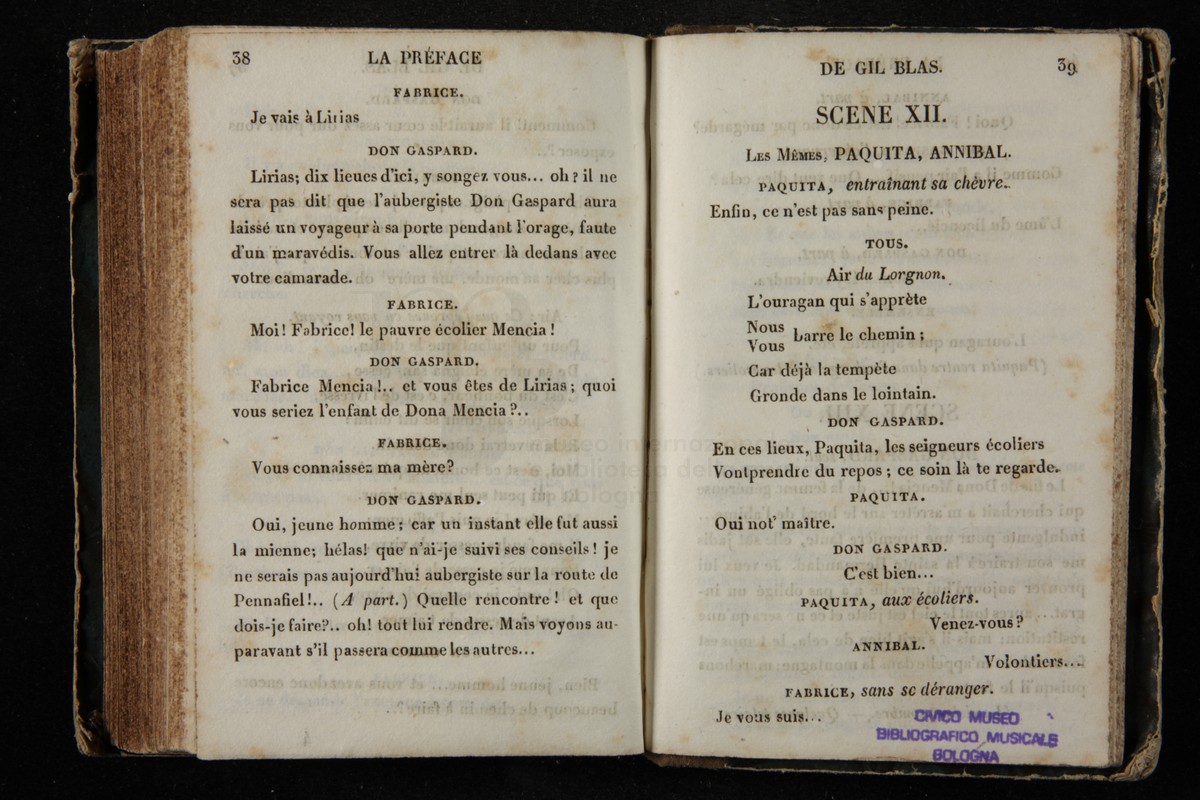 38
LA PRÉFACE
FABRICE.
Je vais à Lirias
DON GASPARD.
Lirias; dix lieues d'ici, y songez vous... oh? il ne
sera pas dit que l'aubergiste Don Gaspard aura
laissé un voyageur à sa porte pendant l'orage, faute
d'un maravédis. Vous allez entrer là dedans avec
votre camarade.
FABRICE.
Moi! Fabrice! le pauvre écolier Mencia!
DON GASPARD.
Fabrice Mencia!.. et vous êtes de Lirias; quoi
vous seriez l'enfant de Dona Mencia?..
FABRICE.
Vous connaissez ma mère?
DON GASPARD.
Oui, jeune homme; car un instant elle fut aussi
la mienne; hélas! que n'ai-je suivi ses conseils! je
ne serais pas aujourd'hui aubergiste sur la route de
Pennafiel!.. (A part.) Quelle rencontre! et que
dois-je faire?.. oh! tout lui rendre. Mais voyons au-
paravant s'il passera comme les autres...
DE GIL BLAS.
39
SCENE XII.
LES MÊMES, PAQUITA, ANNIBAL.
PAQUITA, entraînant sa chèvre..
Enfin, ce n'est pas sans peine.
TOUS.
Air du Lorgnon.
L'ouragan qui s'apprète
Nous
Vous barre le chemin;
Car déjà la tempète
Gronde dans le lointain.
DON GASPARD.
En ces lieux, Paquita, les seigneurs écoliers
Vontprendre du repos; ce soin là te regarde.
PAQUITA.
Oui not' maître.
DON GASPARD.
C'est bien...
PAQUITA, aux écoliers.
Venez-vous?
ANNIBAL.
Volontiers...
FABRICE, sans se déranger.
Je vous suis...
CIVICO MUSEO
BIBLIOGRAFICO MUSICALE
BOLOGNA